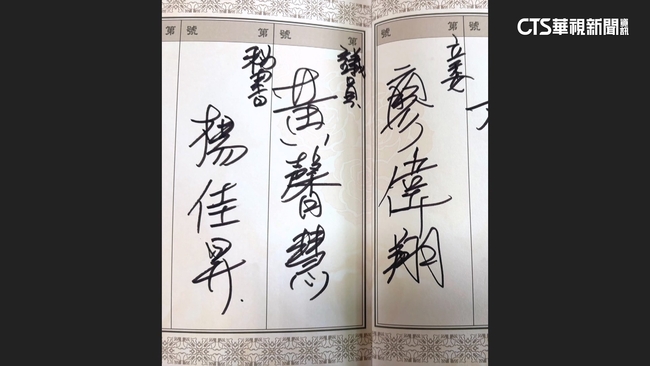 CTS華視新聞資訊
第 號
立委
廖偉翔
第 號
議員
黃馨慧
第 號
秘書
楊佳昇